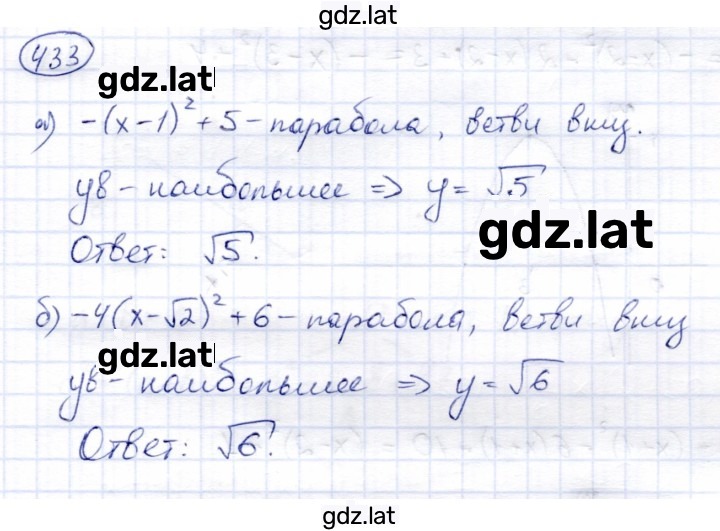 gdz.lat
433
gdz.lat
а) -(x-1)² + 5 - парабола, ветви вниз.
yв - наибольшее => y = √5
gdz.lat
Ответ: √5.
б) -4(x-√2)² + 6 - парабола, ветви вниз
gdz.lat
yв - наибольшее => y = √6
Ответ: √6.
gdz.lat